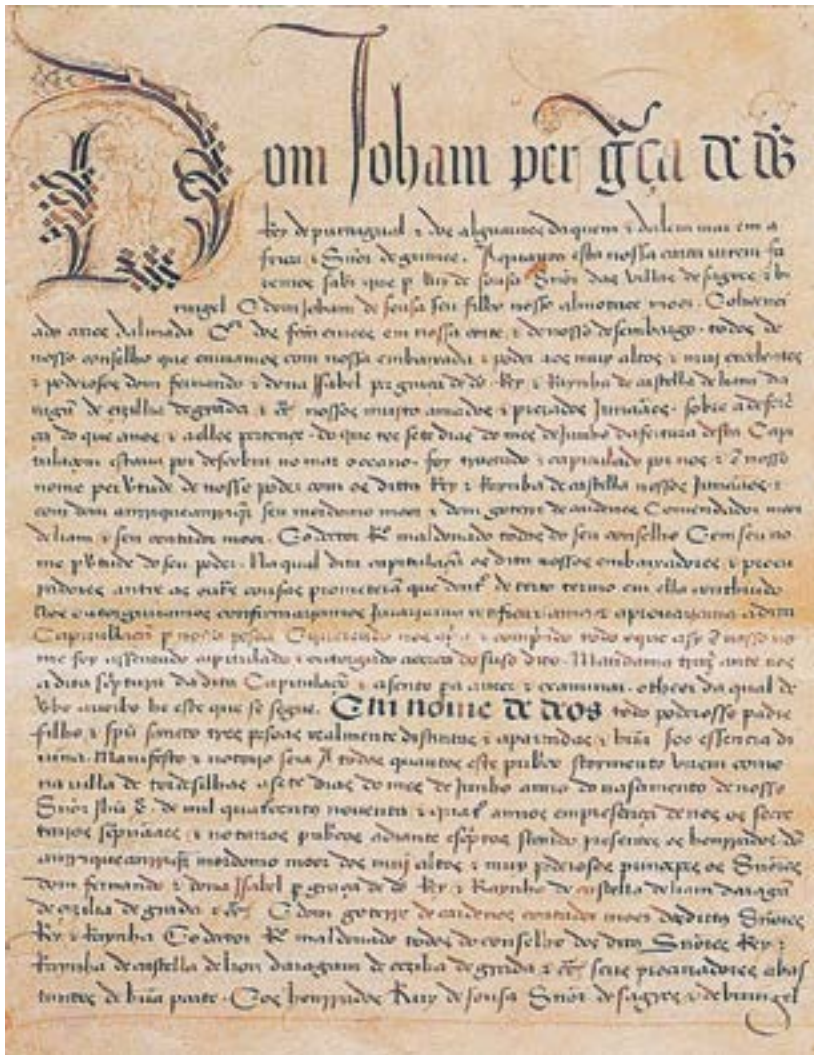 Dom Joham per gça de ds
Rey de purtugual & dos algarues daquem & dalem mar em a
frica & Snõr de guinee. A quantos esta nossa carta virem fa
zemos saber que per Ruy de sousa Snõr das villas de sagres & bi
ringel E dom Joham de sousa seu filho nosso almotace moor. E o licenci
ado aires dalmada em nossa corte & do nosso desembargo. todos do
nosso conselho que enuiamos com nossa embaixada & poder aos muy altos & muy excelentes
& poderosos dom fernando & dona Isabel per graça de ds. Rey & Raynha de castella de liam da
ragã de cezilia de grada & c̃. nossos muyto amados & prezados Jrmãaos. sobre a deferẽ
ça do que a nos & a elles pertence. do que tee sete dias do mes de Junho da feitura desta Capi
tulaçam estaua por descobrir no mar oceano. foy trautado & capitulado por nos & ẽ nosso
nome per vtude de nosso poder com os dittos Rey & Raynha de castella nossos Jrmãaos &
com dom anrrique anrriq̃z seu mordomo moor & dom goterre de cardenas Comendador moor
de liam & seu contador moor. E o doctor R̃o maldonado todos do seu conselho E em seu no
me p vtude do seu poder. Na qual dita capitulaçã os ditos nossos embaixadores & procu
radores antre as outras cousas prometerã que dentro de certo termo em ella contheudo
Nos outorgariamos confirmariamos Jurariamos reteficariamos & aprouariamos a dita
Capitullaçã p nossa pesoa E querendo nos & comprindo todo o que asy ẽ nosso no
me foy assentado capitulado & outorgado acerca do suso dito. Mandamos trazer ante nos
a dita scriptura da dita Capitulaçõ & asento pa a veer & examinar. o theor da qual de
vbo a uerbo he este que se segue. Em nome de deos todo poderosso padre
filho & spũ sancto tres pesoas realmente distintas & apartadas & hũa soo essencia di
uina. Manifesto & notorio seia A todos quantos este pubrico stormento virem como
na villa de tordesilhas a sete dias do mes de Junho anno do nascimento de nosso
Snõr Jhũ de mil quatrocentos nouenta & quatro annos em presença de nos os secre
tarios & notarios pubricos adiante scriptos stando presentes os honrrados dõ
anrrique anrriq̃z mordomo moor dos muj altos & muy poderosos principes os Snõres
dom fernando & dona Isabel p graça de ds Rey & Raynha de castella de liam daragã
de cezilia de grada & c̃. E dom goterre de cardenas contador moor dos ditos Snõres
Rey & Raynha E o doctor R̃o maldonado todos do conselho dos ditos Snõres Rey &
Raynha de castella de lion daragam de cezilia de grada & c̃ seus procuradores abas
tantes de hũa parte. E os honrrados Ruy de sousa Snõr de sagres & de biringel